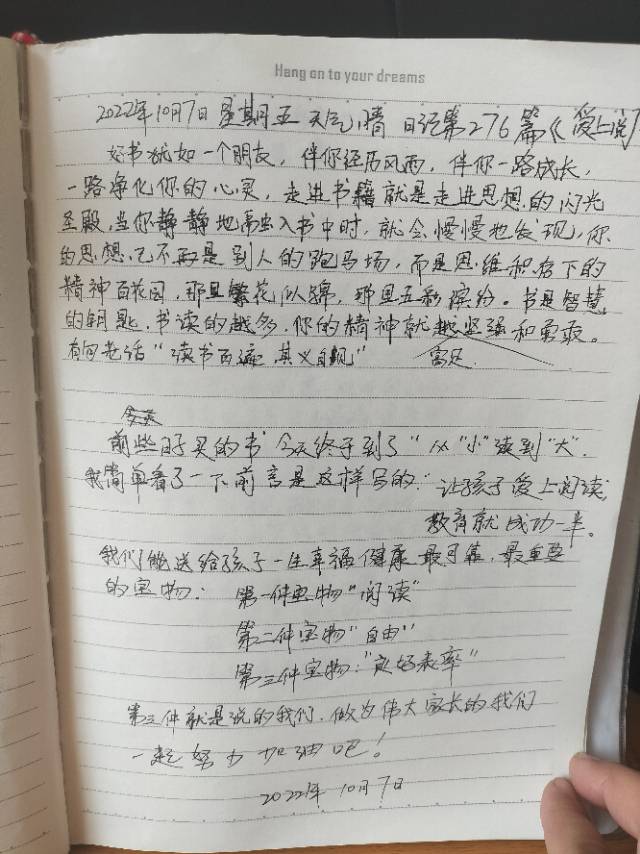 Hang on to your dreams
2022年10月7日 星期五 天气晴 日记第276篇《爱上阅
好书犹如一个朋友，伴你经历风雨，伴你一路成长，
一路净化你的心灵，走进书籍就是走进思想的闪光
圣殿，当你静静地融入书中时，就会慢慢地发现，你
的思想已不再是别人的跑马场，而是思维积存下的
精神百花园，那里繁花似锦，那里五彩缤纷。书是智慧
的钥匙，书读的越多，你的精神就越坚强和勇敢。
有句老话“读书百遍，其义自现”
富足
前些日子买的书 今天终于到了“从“小”读到“大”．
我简单看了一下前言是这样写的：让孩子爱上阅读，
教育就成功一半。
我们能送给孩子一生幸福健康最可靠，最重要
的宝物：第一件宝物“阅读”
第二件宝物“自由”
第三件宝物：“良好表率”
第三件就是说的我们．做为伟大家长的我们
一起努力加油吧！
2022年10月7日